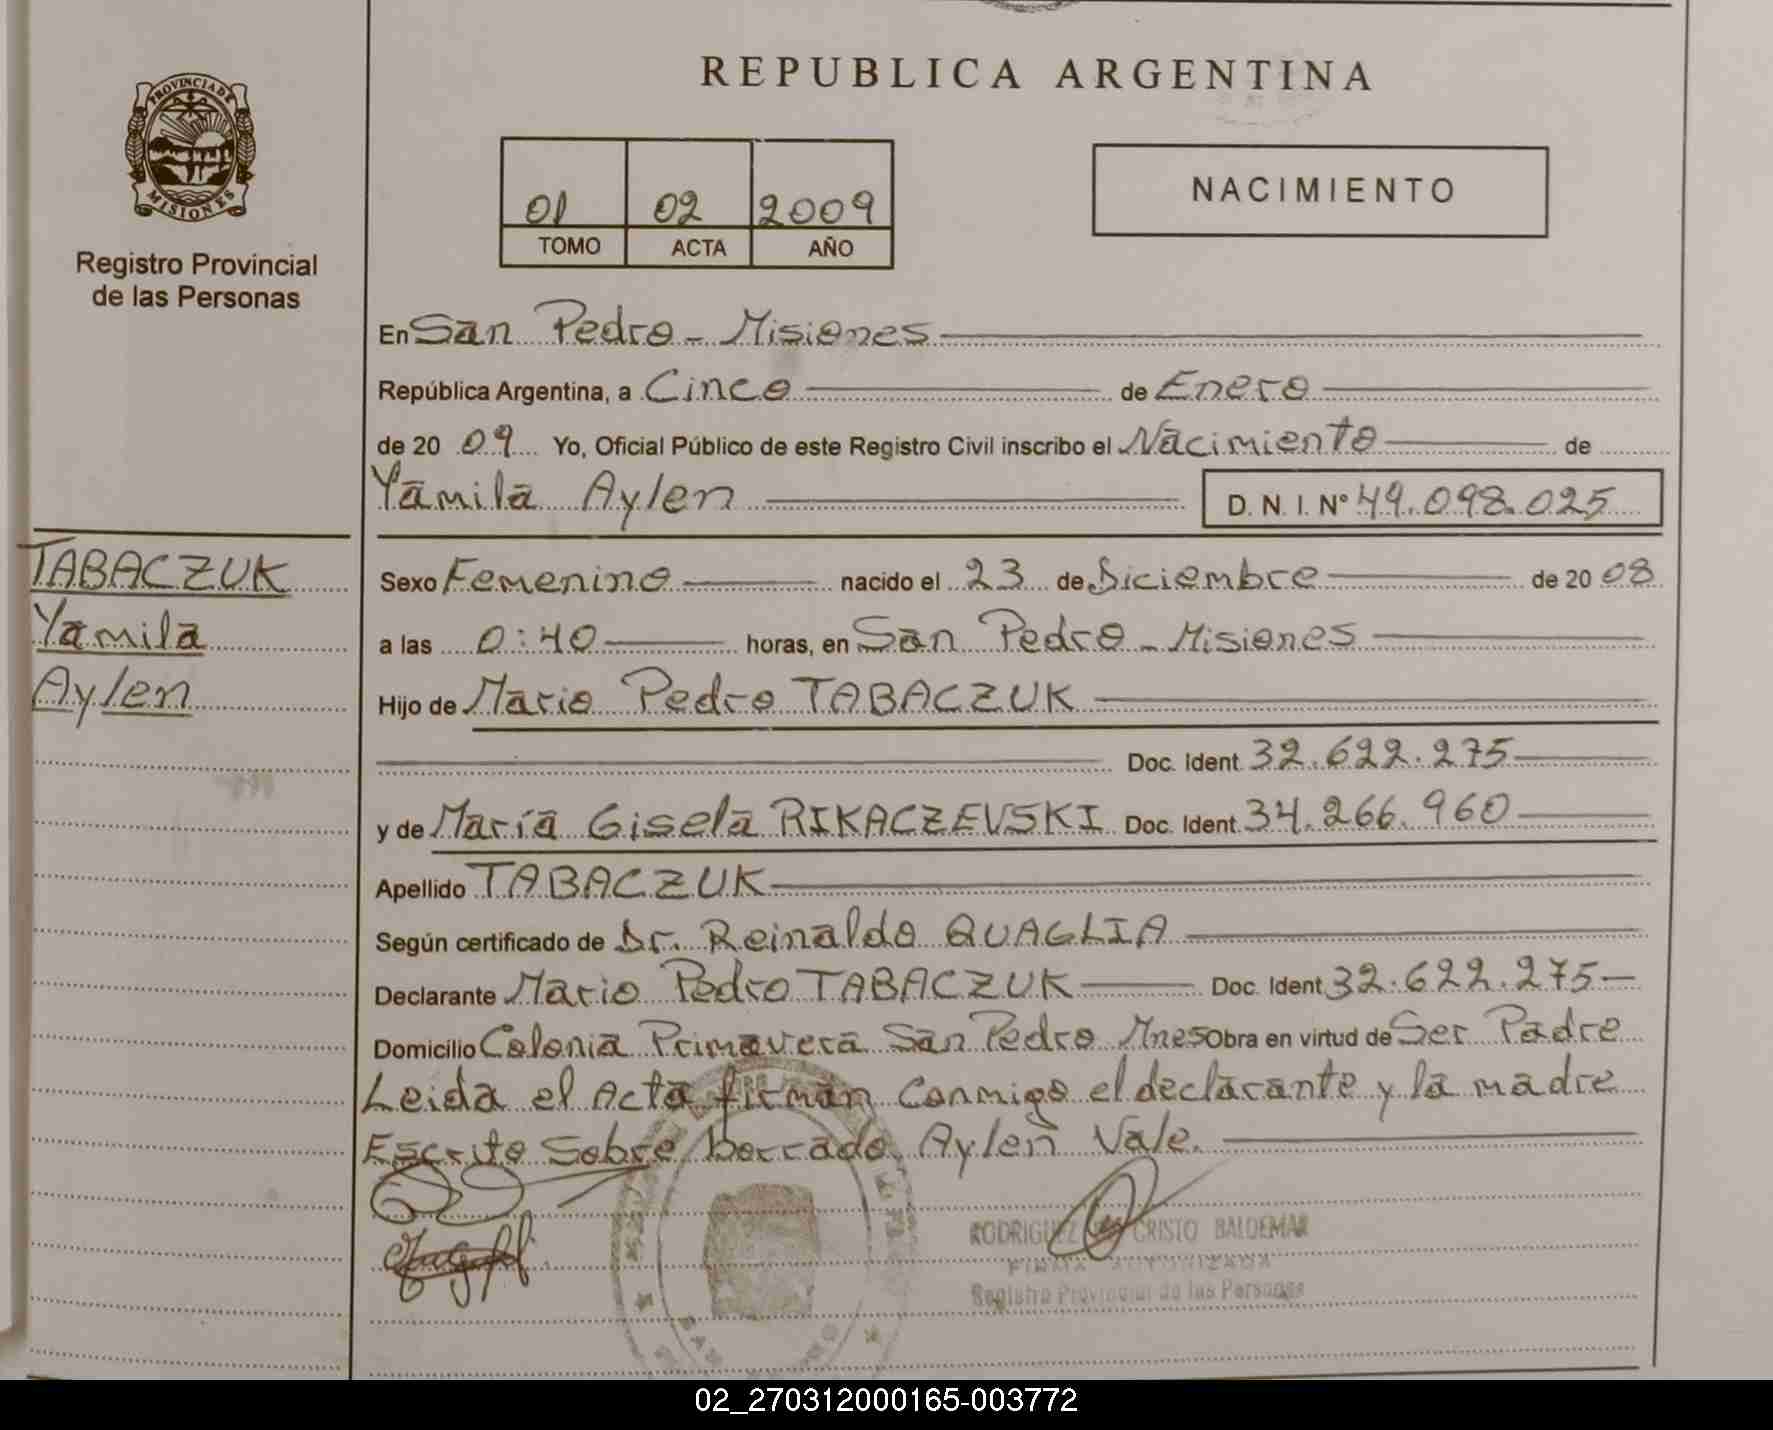 REPUBLICA ARGENTINA
PROVINCIA DE
MISIONES
Registro Provincial
de las Personas
01 02 2009
TOMO ACTA AÑO
NACIMIENTO
En San Pedro - Misiones
República Argentina, a Cinco de Enero
de 20 09 Yo, Oficial Público de este Registro Civil inscribo el Nacimiento de
Yamila Aylen D. N. I. Nº 49.098.025
TABACZUK
Yamila
Aylen
Sexo Femenino nacido el 23 de Diciembre de 20 08
a las 0:40 horas, en San Pedro - Misiones
Hijo de Mario Pedro TABACZUK
Doc. Ident 32.622.275
y de María Gisela RIKACZEVSKI Doc. Ident 34.266.960
Apellido TABACZUK
Según certificado de Dr. Reinaldo QUAGLIA
Declarante Mario Pedro TABACZUK Doc. Ident 32.622.275
Domicilio Colonia Primavera San Pedro Mnes Obra en virtud de Ser Padre
Leida el Acta firman Conmigo el declarante y la madre
Escrito Sobre borrado Aylen Vale.
RODRIGUEZ CRISTO BALDEMAR
FIRMA AUTORIZADA
Registro Provincial de las Personas
02_270312000165-003772